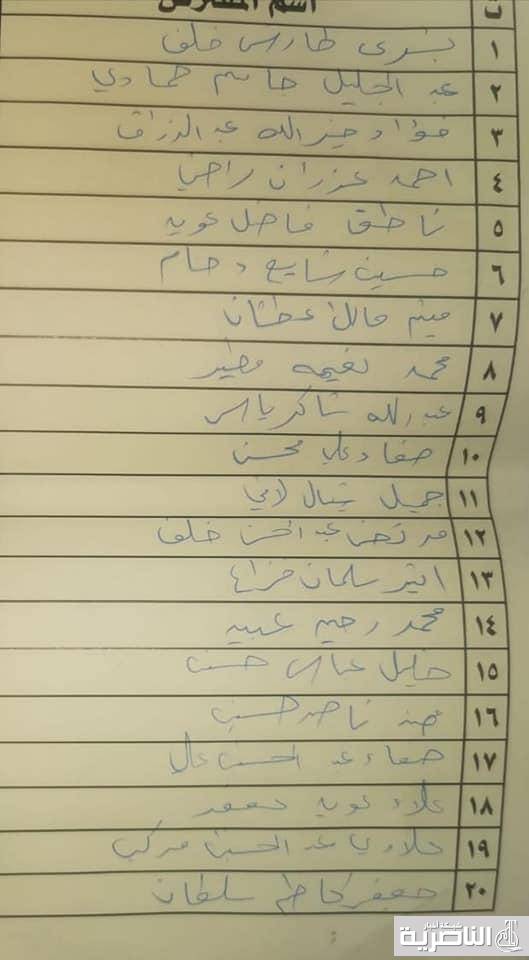 ت اسم المقترض
١ بشرى طارش خلف
٢ عبد الجليل جاسم حمادي
٣ فؤاد خير الله عبد الرزاق
٤ احمد عزران راضي
٥ ناطق فاضل عويد
٦ حسين شايع دحام
٧ ميثم مالك عطشان
٨ محمد نعيمه مطير
٩ عبد الله شاكر ياس
١٠ صفاء علي محسن
١١ جميل
١٢ مرتضى عبد الحسن خلف
١٣ سلمان
١٤ محمد رحيم عبيد
١٥ خليل عباس حسن
١٦ ناصر حسين
١٧ صفاء عبد الحسين
١٨ علاء عويد جعفر
١٩ عبد الحسين
٢٠ جعفر كاظم سلطان
شبكة أخبار الناصرية